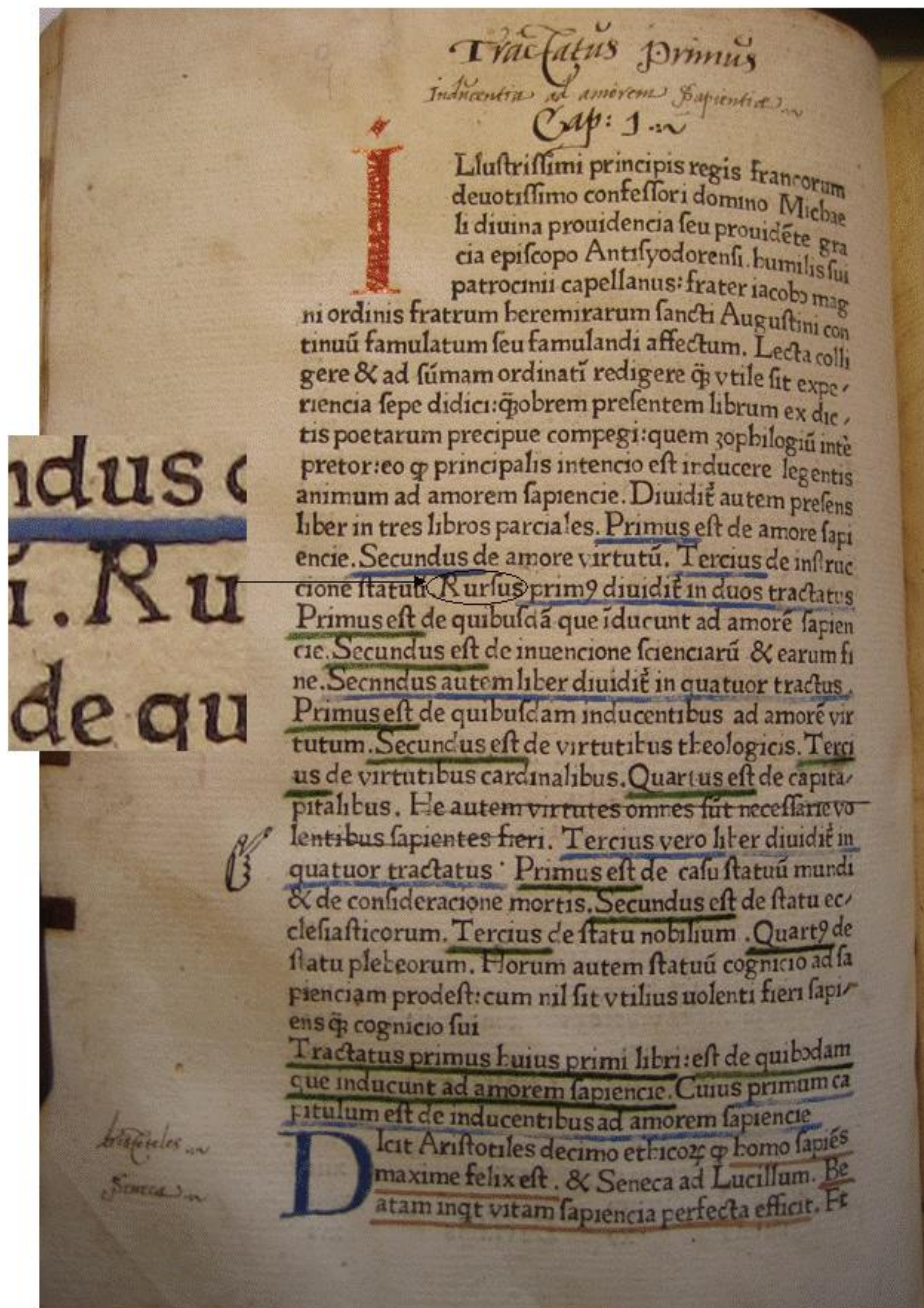 Tractatus Primus
Inducentia ad amorem Sapientiæ
Cap: 1
ILluſtriſſimi principis regis francorum
deuotiſſimo confeſſori domino Michae
li diuina prouidencia ſeu prouidēte gra
cia epiſcopo Antiſyodorenſi. humilis ſui
patrocinii capellanus: frater iacobꝰ mag
ni ordinis fratrum heremirarum ſancti Auguſtini con
tinuū famulatum ſeu famulandi affectum. Lecta colli
gere & ad ſūmam ordinatī redigere q̄ꝫ vtile ſit expe⸗
riencia ſepe didici: q̄ꝫobrem preſentem librum ex dic⸗
tis poetarum precipue compegi: quem ʒophilogiū intē
pretor: eo ꝙ principalis intencio eſt inducere legentis
animum ad amorem ſapiencie. Diuidit̄ autem preſens
liber in tres libros parciales. Primus eſt de amore ſapi
encie. Secundus de amore virtutū. Tercius de inſtruc
cione ſtatuū. Rurſus primꝰ diuidit̄ in duos tractatus
Primus eſt de quibuſdā que īducunt ad amorē ſapien
cie. Secundus eſt de inuencione ſcienciarū & earum fi
ne. Secnndus autem liber diuidit̄ in quatuor tractus.
Primus eſt de quibuſdam inducentibus ad amorē vir
tutum. Secundus eſt de virtutibus theologicis. Terci
us de virtutibus cardinalibus. Quartus eſt de capita⸗
pitalibus. He autem virtutes omnes ſūt neceſſarie vo
lentibus ſapientes fieri. Tercius vero liber diuidit̄ in
quatuor tractatus. Primus eſt de caſu ſtatuū mundi
& de conſideracione mortis. Secundus eſt de ſtatu ec⸗
cleſiaſticorum. Tercius de ſtatu nobilium. Quartꝰ de
ſtatu plebeorum. Horum autem ſtatuū cognicio ad ſa
pienciam prodeſt: cum nil ſit vtilius uolenti fieri ſapi⸗
ens q̄ꝫ cognicio ſui
Tractatus primus huius primi libri: eſt de quibꝰdam
que inducunt ad amorem ſapiencie. Cuius primum ca
pitulum eſt de inducentibus ad amorem ſapiencie
DIcit Ariſtotiles decimo ethicoꝝ ꝙ homo ſapiēs
maxime felix eſt. & Seneca ad Lucillum. Be
atam inqt vitam ſapiencia perfecta efficit. Et
Aristoteles
Seneca
ndus c
ı. Ru
de qu